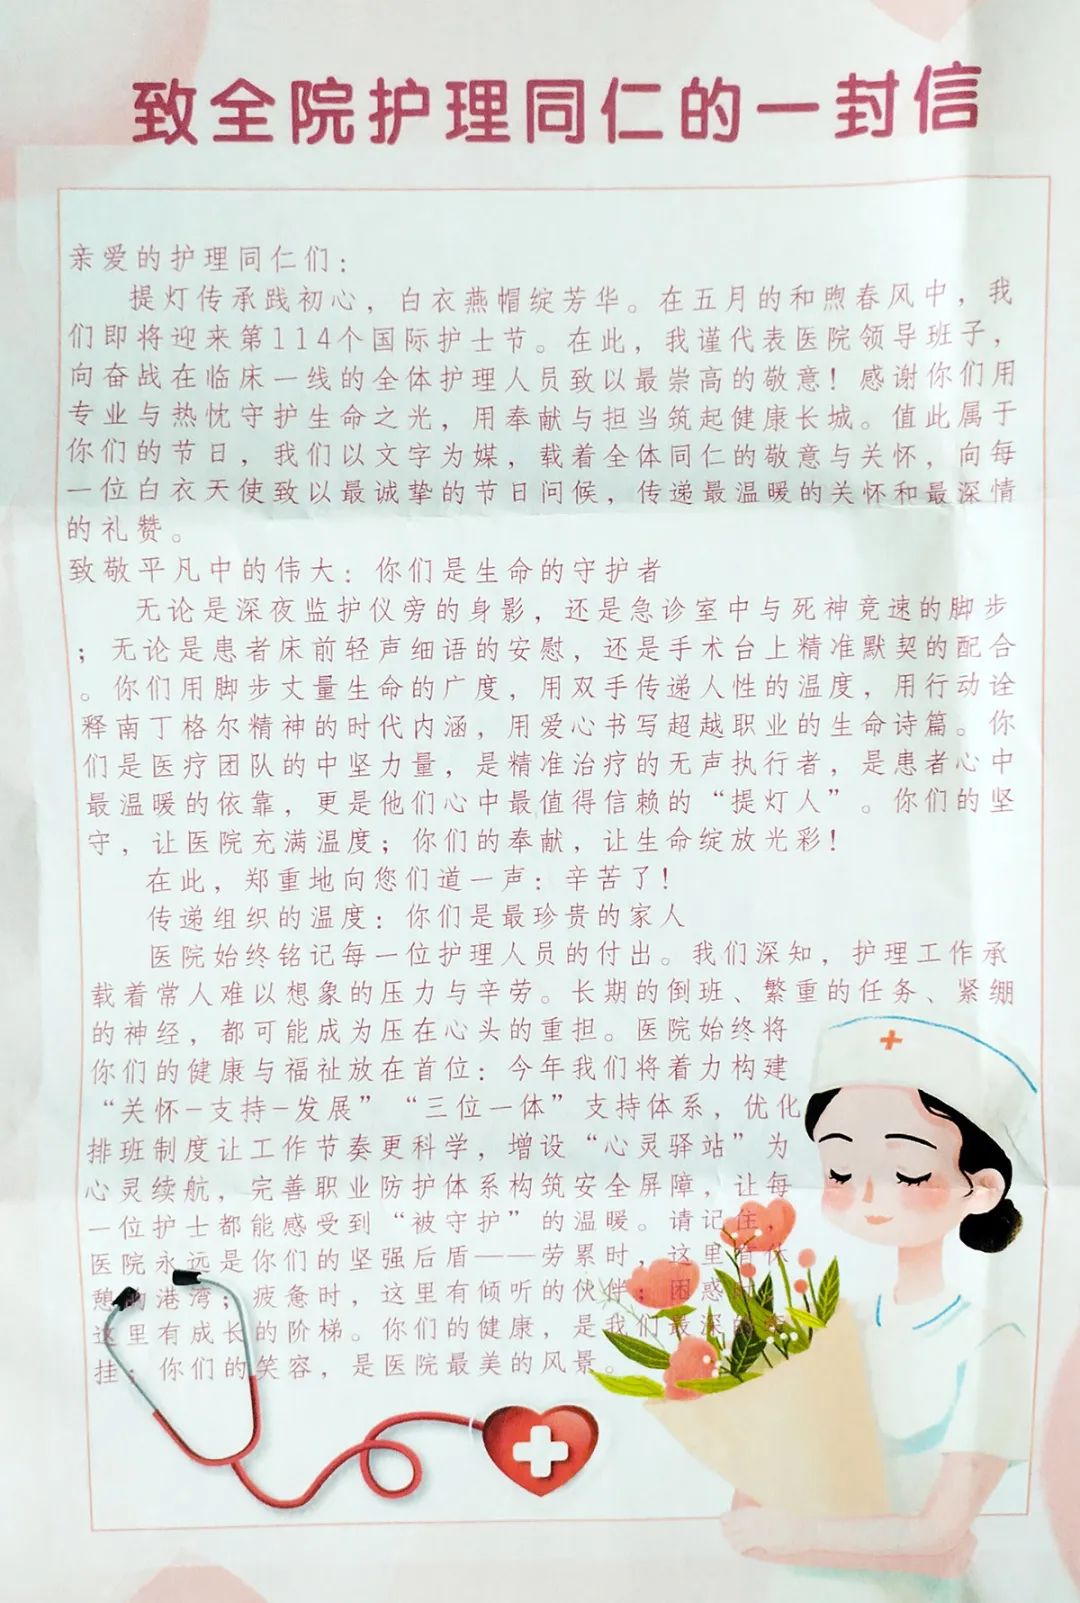 致全院护理同仁的一封信
亲爱的护理同仁们：
提灯传承践初心，白衣燕帽绽芳华。在五月的和煦春风中，我
们即将迎来第114个国际护士节。在此，我谨代表医院领导班子，
向奋战在临床一线的全体护理人员致以最崇高的敬意！感谢你们用
专业与热忱守护生命之光，用奉献与担当筑起健康长城。值此属于
你们的节日，我们以文字为媒，载着全体同仁的敬意与关怀，向每
一位白衣天使致以最诚挚的节日问候，传递最温暖的关怀和最深情
的礼赞。
致敬平凡中的伟大：你们是生命的守护者
无论是深夜监护仪旁的身影，还是急诊室中与死神竞速的脚步
；无论是患者床前轻声细语的安慰，还是手术台上精准默契的配合
。你们用脚步丈量生命的广度，用双手传递人性的温度，用行动诠
释南丁格尔精神的时代内涵，用爱心书写超越职业的生命诗篇。你
们是医疗团队的中坚力量，是精准治疗的无声执行者，是患者心中
最温暖的依靠，更是他们心中最值得信赖的“提灯人”。你们的坚
守，让医院充满温度；你们的奉献，让生命绽放光彩！
在此，郑重地向您们道一声：辛苦了！
传递组织的温度：你们是最珍贵的家人
医院始终铭记每一位护理人员的付出。我们深知，护理工作承
载着常人难以想象的压力与辛劳。长期的倒班、繁重的任务、紧绷
的神经，都可能成为压在心头的重担。医院始终将
你们的健康与福祉放在首位：今年我们将着力构建
“关怀-支持-发展”“三位一体”支持体系，优化
排班制度让工作节奏更科学，增设“心灵驿站”为
心灵续航，完善职业防护体系构筑安全屏障，让每
一位护士都能感受到“被守护”的温暖。请记住，
医院永远是你们的坚强后盾——劳累时，这里有休
憩的港湾；疲惫时，这里有倾听的伙伴；困惑时，
这里有成长的阶梯。你们的健康，是我们最深的
挂；你们的笑容，是医院最美的风景。